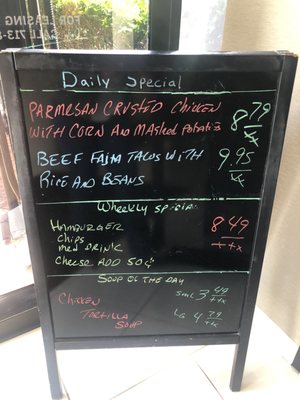 FOR LEASING
CALL 713-
Daily Special
PARMESAN CRUSTED CHICKEN 8 79
WITH CORN AND MASHED POTATOES +tx
BEEF FAJITA TACOS WITH 9.95
RICE AND BEANS +tx
Wheekly special
HAMBURGER 8 49
CHIPS +tx
MED DRINK
CHEESE ADD 50¢
SOUP OF THE DAY
CHICKEN SML 3 49 +tx
TORTILLA LG 4 79 +tx
SOUP